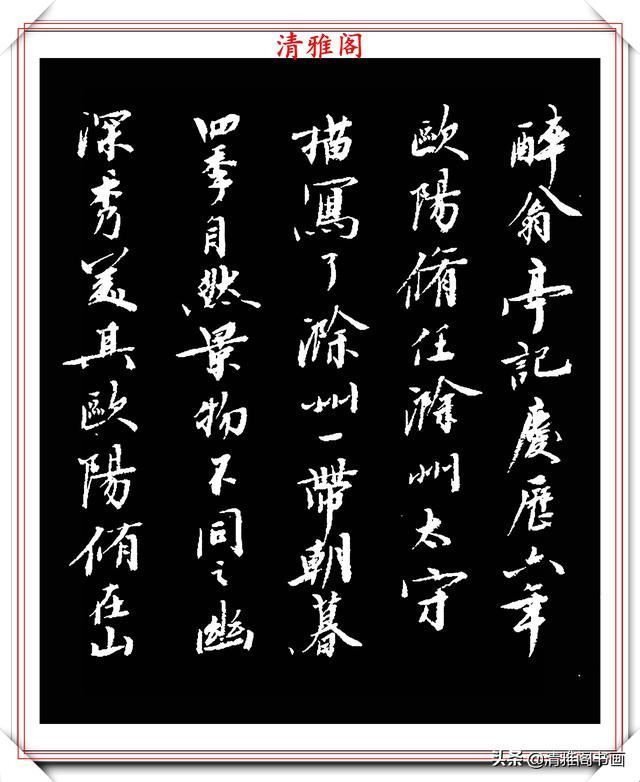 清雅阁
醉翁亭記慶歷六年
歐陽脩任滁州太守
描寫了滁州一帶朝暮
四季自然景物不同之幽
深秀美其歐陽脩在山
头条 @清雅阁书画